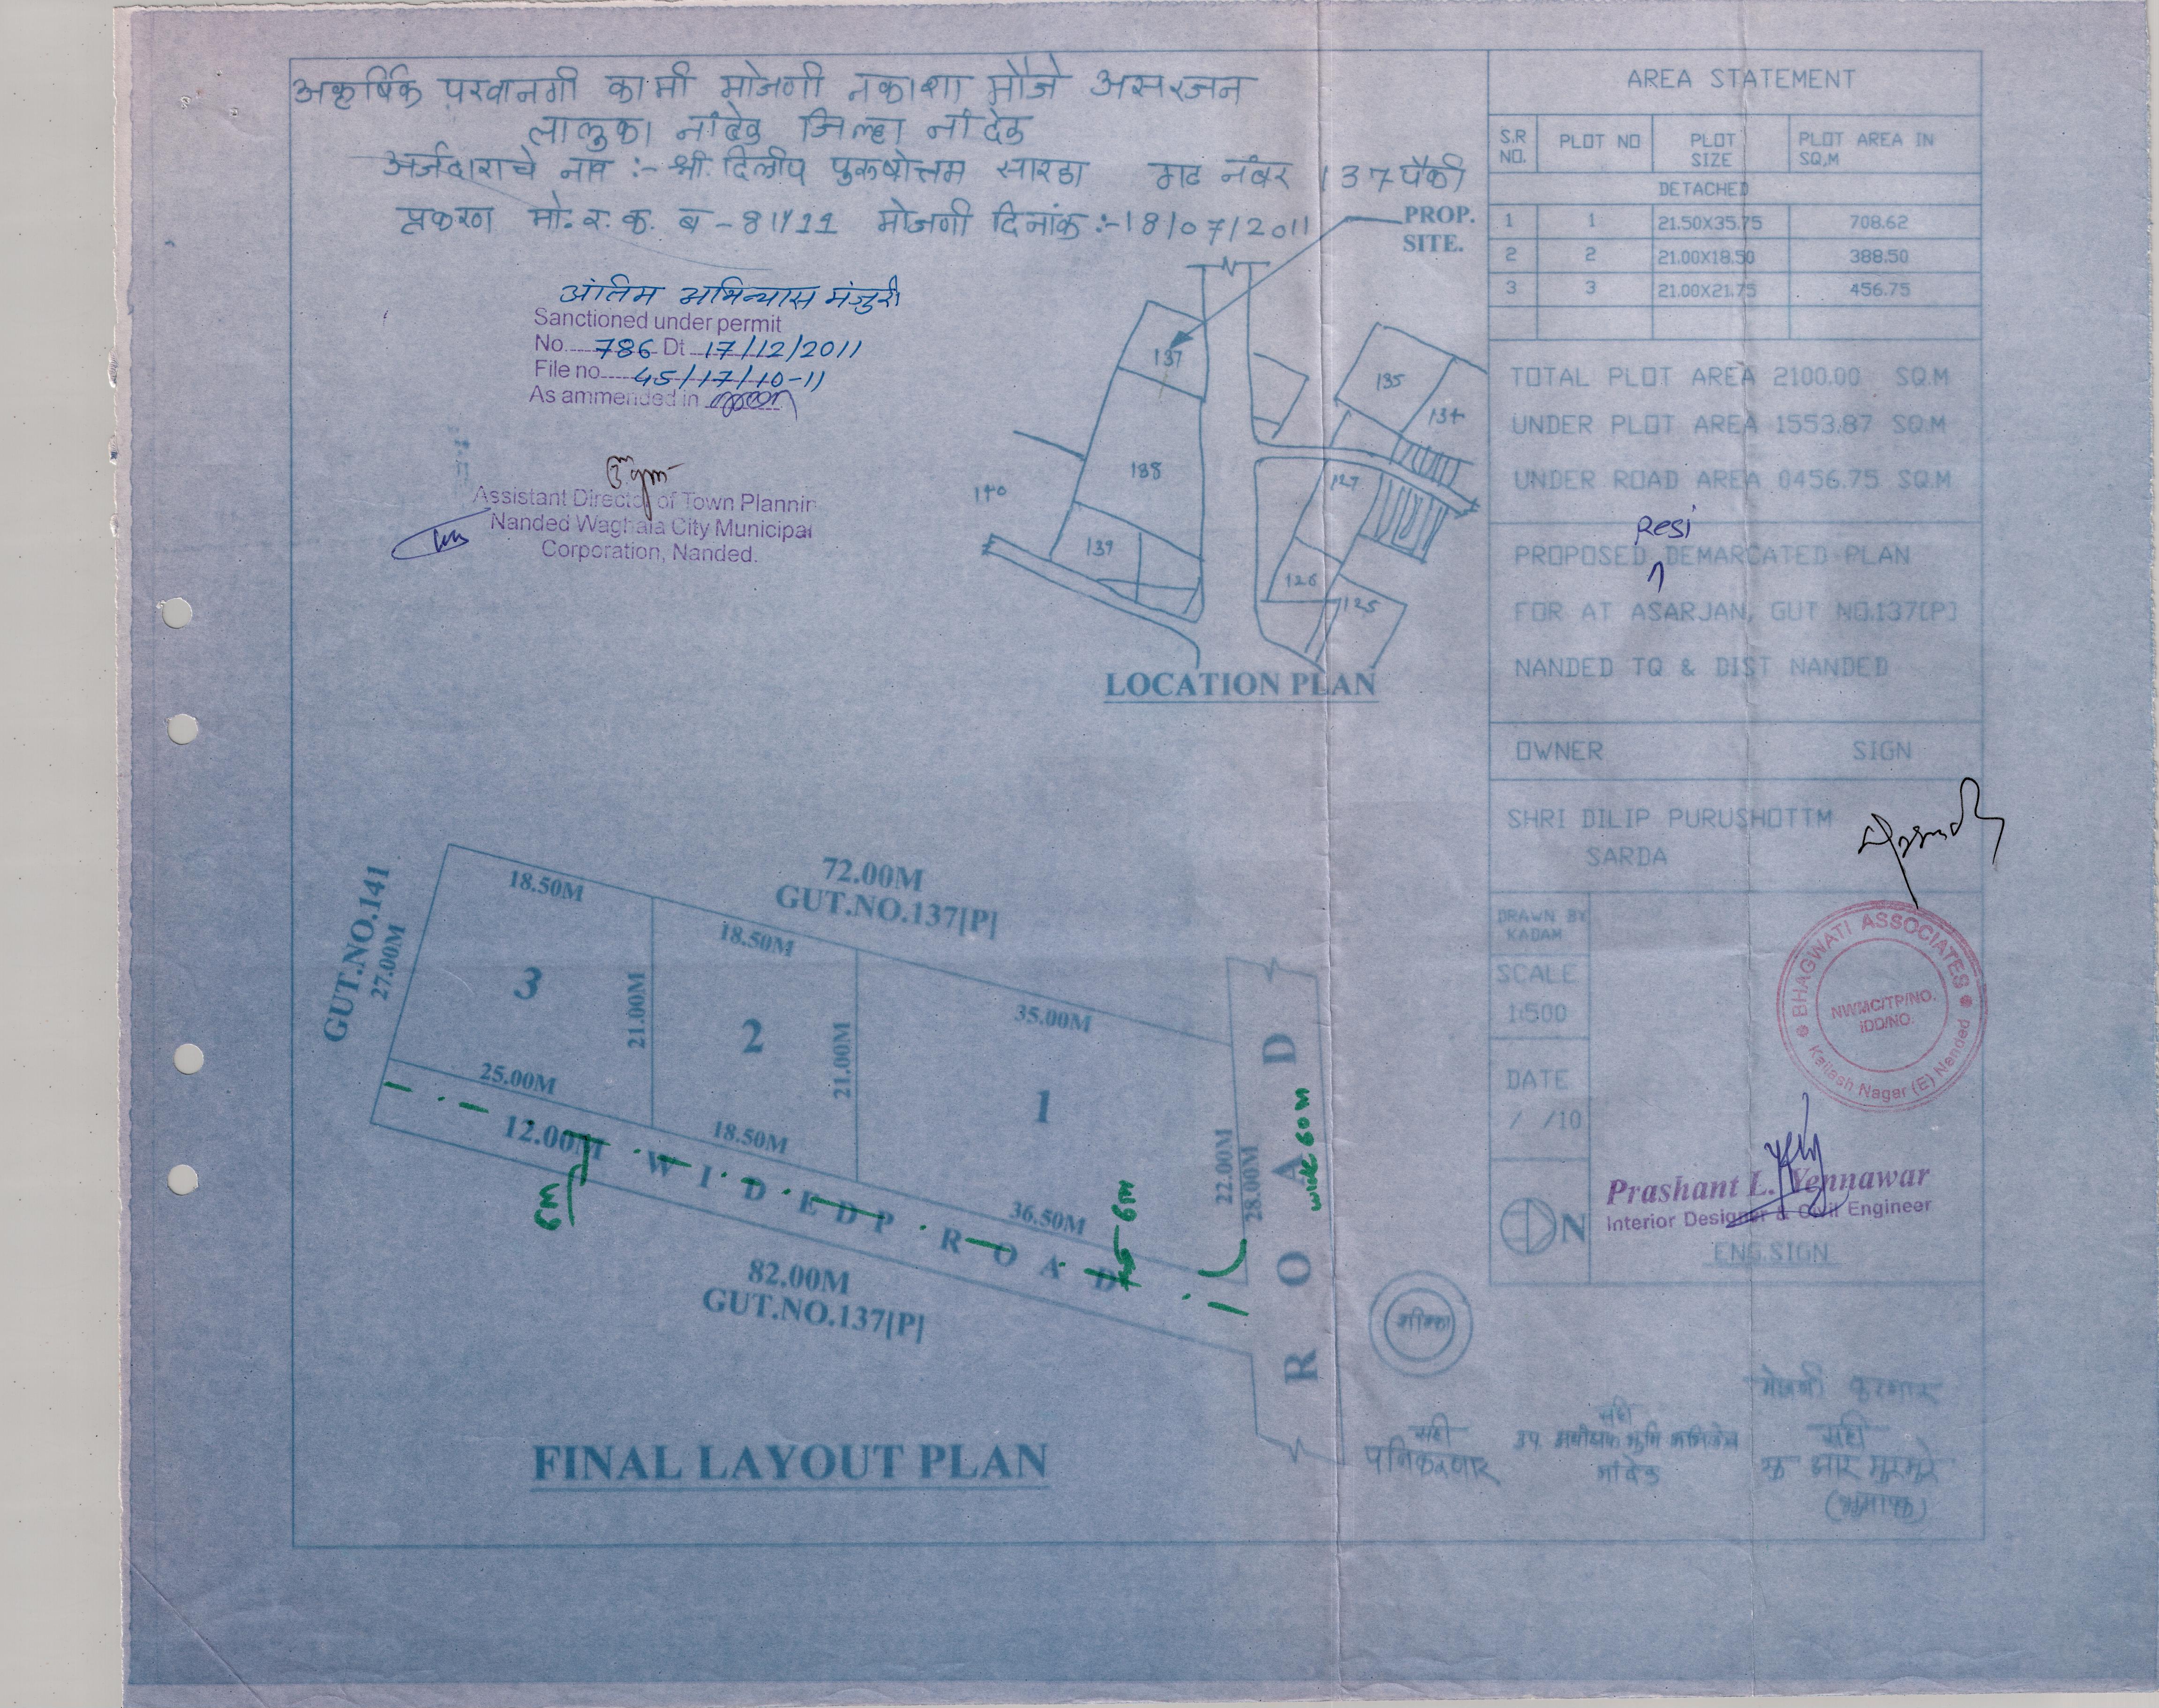 अकृषिक परवानगी कामी मोजणी नकाशा मौजे असरजन
तालुका नांदेड जिल्हा नांदेड
अर्जदाराचे नाव :- श्री. दिलीप पुरुषोत्तम सारडा गट नंबर 137 पैकी
प्रकरण मो. र. क्र. ब - 81/11 मोजणी दिनांक :- 18/07/2011
PROP.
SITE.
अंतिम अभिन्यास मंजुरी
Sanctioned under permit
No. 786 Dt 17/12/2011
File no 45/17/10-11
As ammended in
Assistant Director of Town Plannin
Nanded Waghala City Municipal
Corporation, Nanded.
137
135
134
188
140
127
139
126
125
LOCATION PLAN
AREA STATEMENT
S.R NO. PLOT NO PLOT SIZE PLOT AREA IN SQ,M
DETACHED
1 1 21.50X35.75 708.62
2 2 21.00X18.50 388.50
3 3 21.00X21.75 456.75
TOTAL PLOT AREA 2100.00 SQ.M
UNDER PLOT AREA 1553.87 SQ.M
UNDER ROAD AREA 0456.75 SQ.M
Resi
PROPOSED DEMARCATED PLAN
FOR AT ASARJAN, GUT NO.137[P]
NANDED TQ & DIST NANDED
OWNER SIGN
SHRI DILIP PURUSHOTTM
SARDA
DRAWN BY
KADAM
SCALE
1:500
DATE
/ /10
N
BHAGWATI ASSOCIATES
NWMC/TP/NO.
IDD/NO.
Kailash Nagar (E) Nanded
Prashant L. Yennawar
Interior Designer & Civil Engineer
ENG.SIGN
GUT.NO.141
27.00M
72.00M
GUT.NO.137[P]
18.50M
18.50M
35.00M
3
21.00M
2
21.00M
1
25.00M
18.50M
36.50M
22.00M
28.00M
12.00M WIDE DP ROAD
6M
6M
ROAD
wide 60 M
82.00M
GUT.NO.137[P]
FINAL LAYOUT PLAN
सही
सही
उप अधीक्षक भूमि अभिलेख
नांदेड
मोजणी करणार
सही